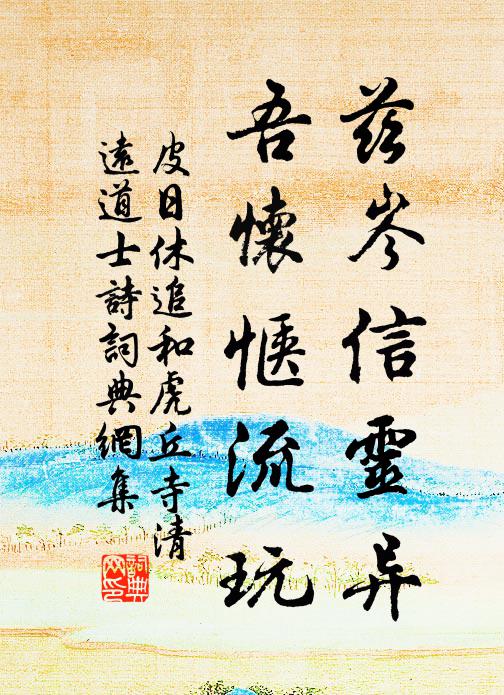 兹岑信靈异
吾懷愜流玩
皮日休追和虎丘寺清
遠道士詩詞典網集
詞典
网印